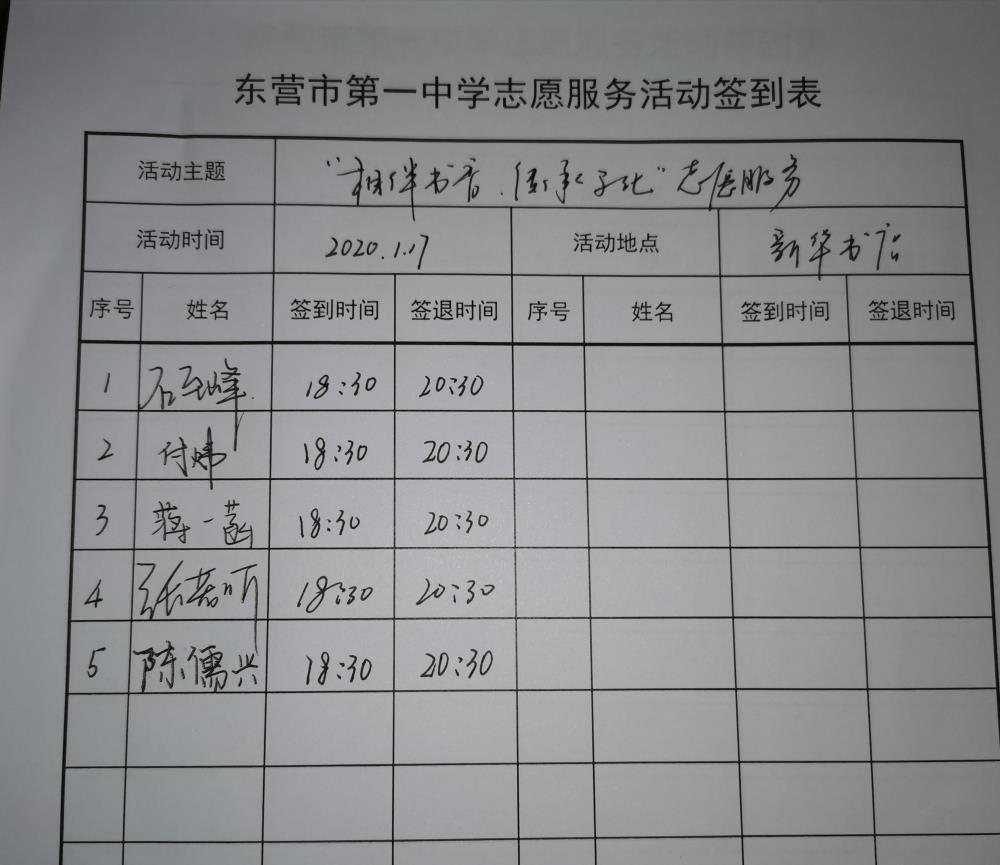 东营市第一中学志愿服务活动签到表
活动主题 "相伴书香.传承文化"志愿服务
活动时间 2020.1.17 活动地点 新华书店
序号 姓名 签到时间 签退时间 序号 姓名 签到时间 签退时间
1 石玉峰 18:30 20:30
2 付炜 18:30 20:30
3 蒋一菡 18:30 20:30
4 张若昕 18:30 20:30
5 陈儒兴 18:30 20:30